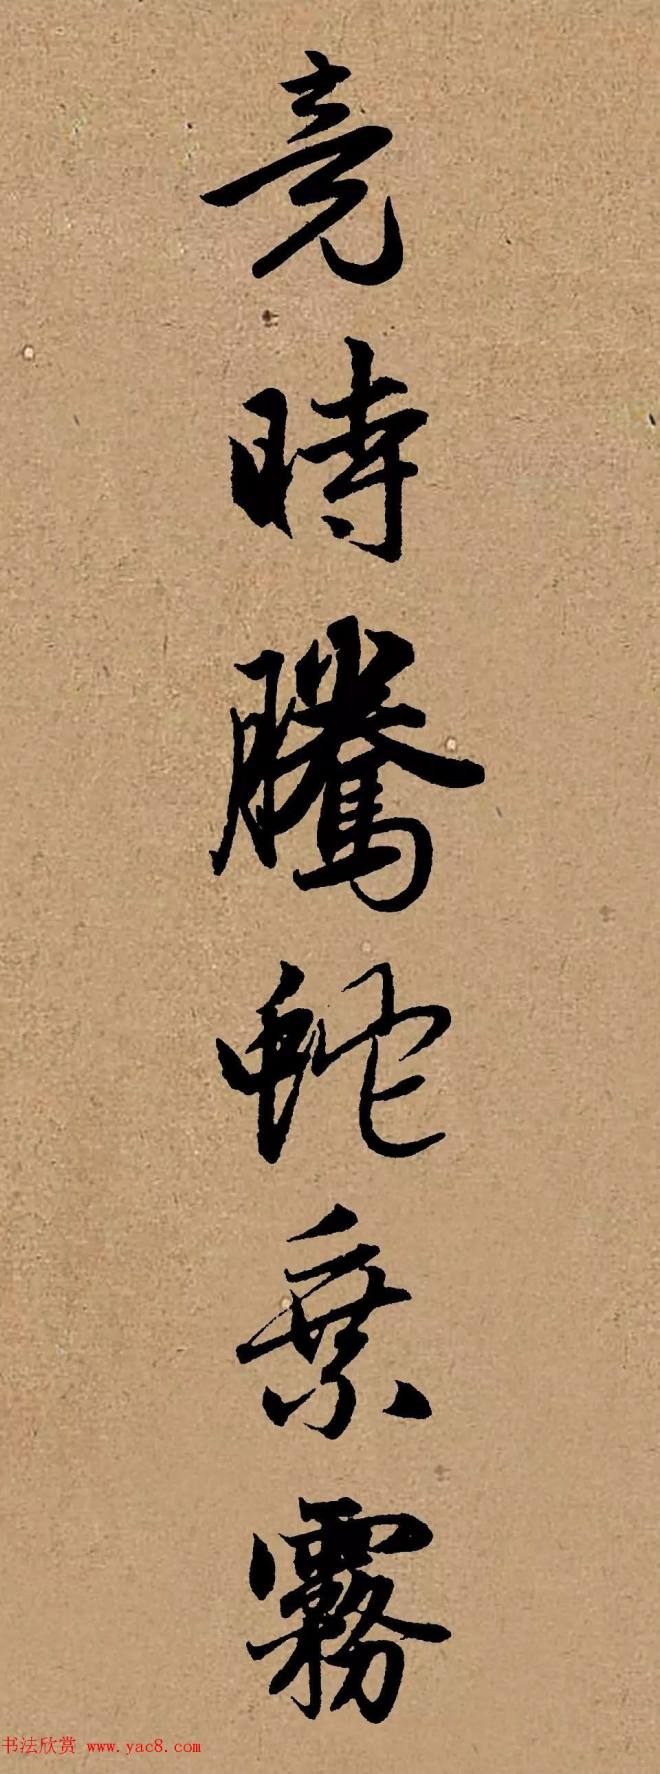 竟時騰蛇乗霧
书法欣赏 www.yac8.com